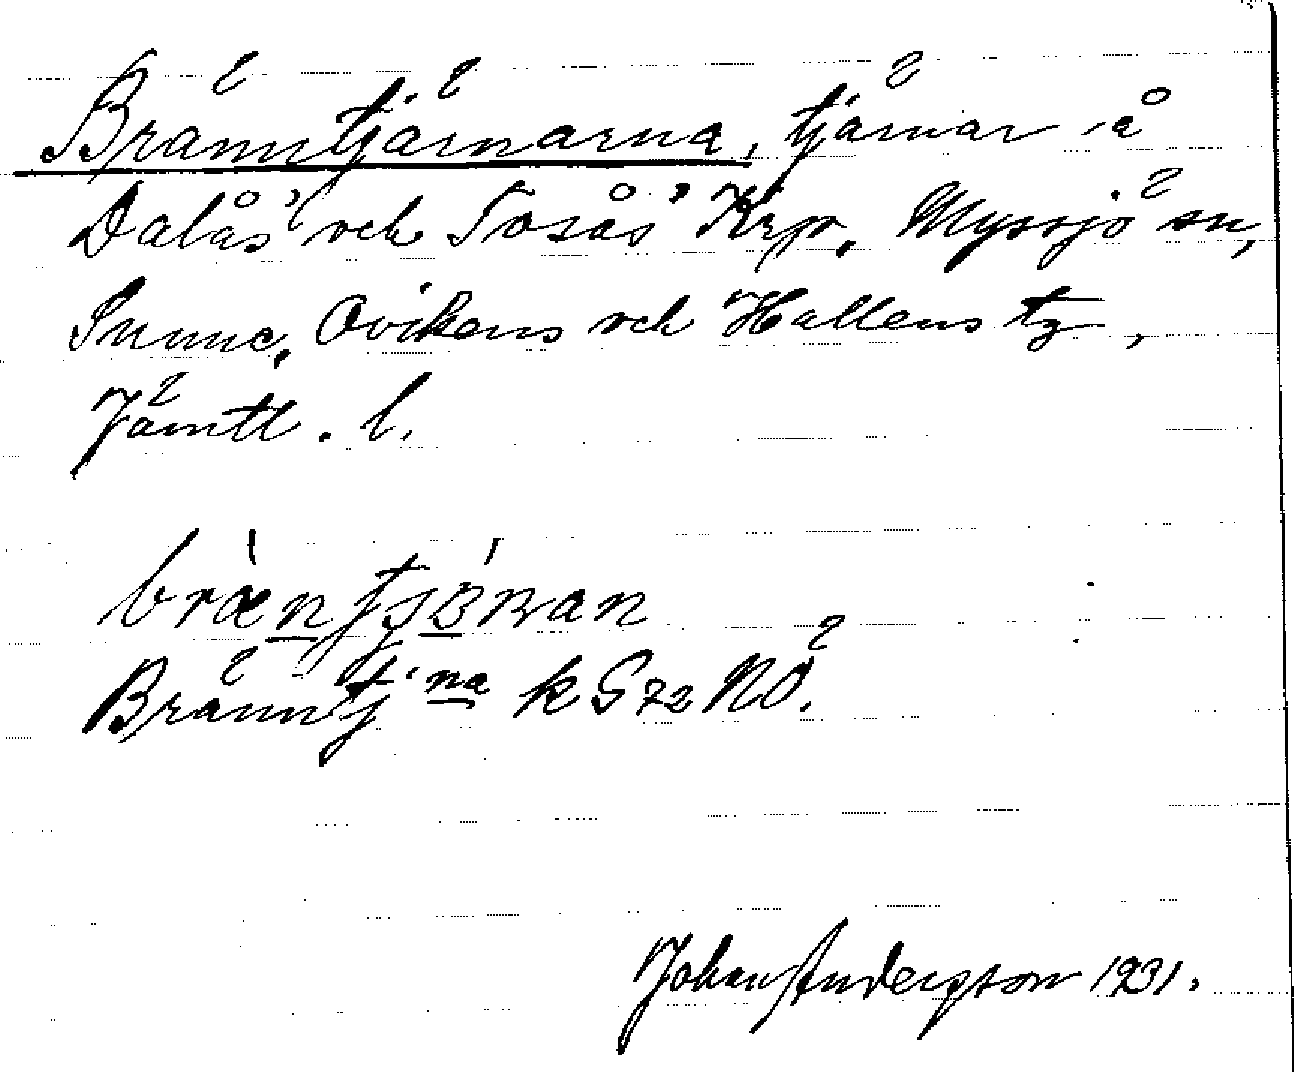 Bränntjärnarna, tjärnar å
Dalås' och Tosås' Krp, Myssjö sn,
Sunne, Ovikens och Hallens tg,
Jämtl. l.
Bränntj. na k G 72 NÖ.
Johan Andersson 1931.